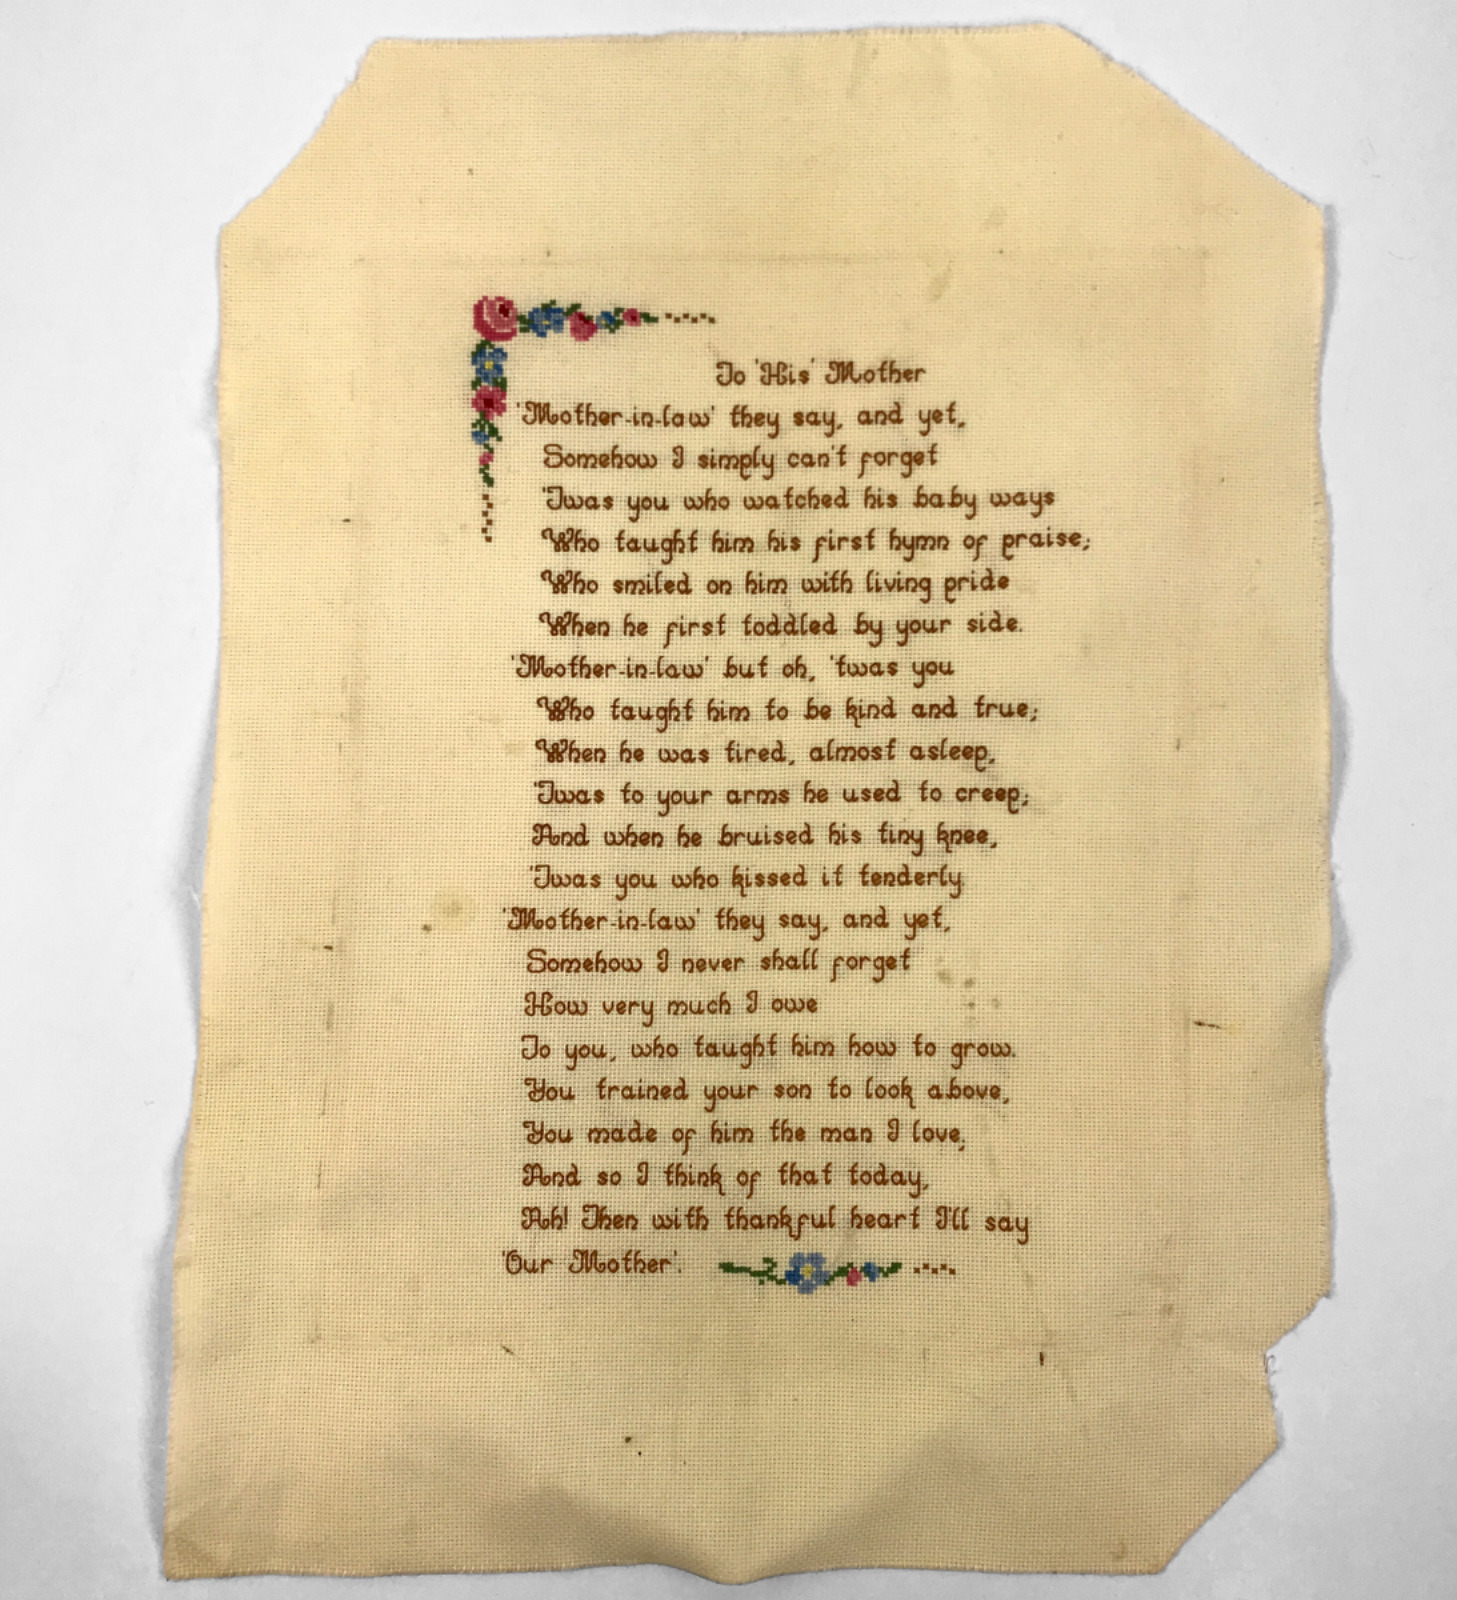 To 'His' Mother
'Mother-in-law' they say, and yet,
Somehow I simply can't forget
'Twas you who watched his baby ways
Who taught him his first hymn of praise;
Who smiled on him with living pride
When he first toddled by your side.
'Mother-in-law' but oh, 'twas you
Who taught him to be kind and true;
When he was tired, almost asleep,
'Twas to your arms he used to creep;
And when he bruised his tiny knee,
'Twas you who kissed it tenderly
'Mother-in-law' they say, and yet,
Somehow I never shall forget
How very much I owe
To you, who taught him how to grow.
You trained your son to look above,
You made of him the man I love;
And so I think of that today,
Ah! Then with thankful heart I'll say
'Our Mother'.